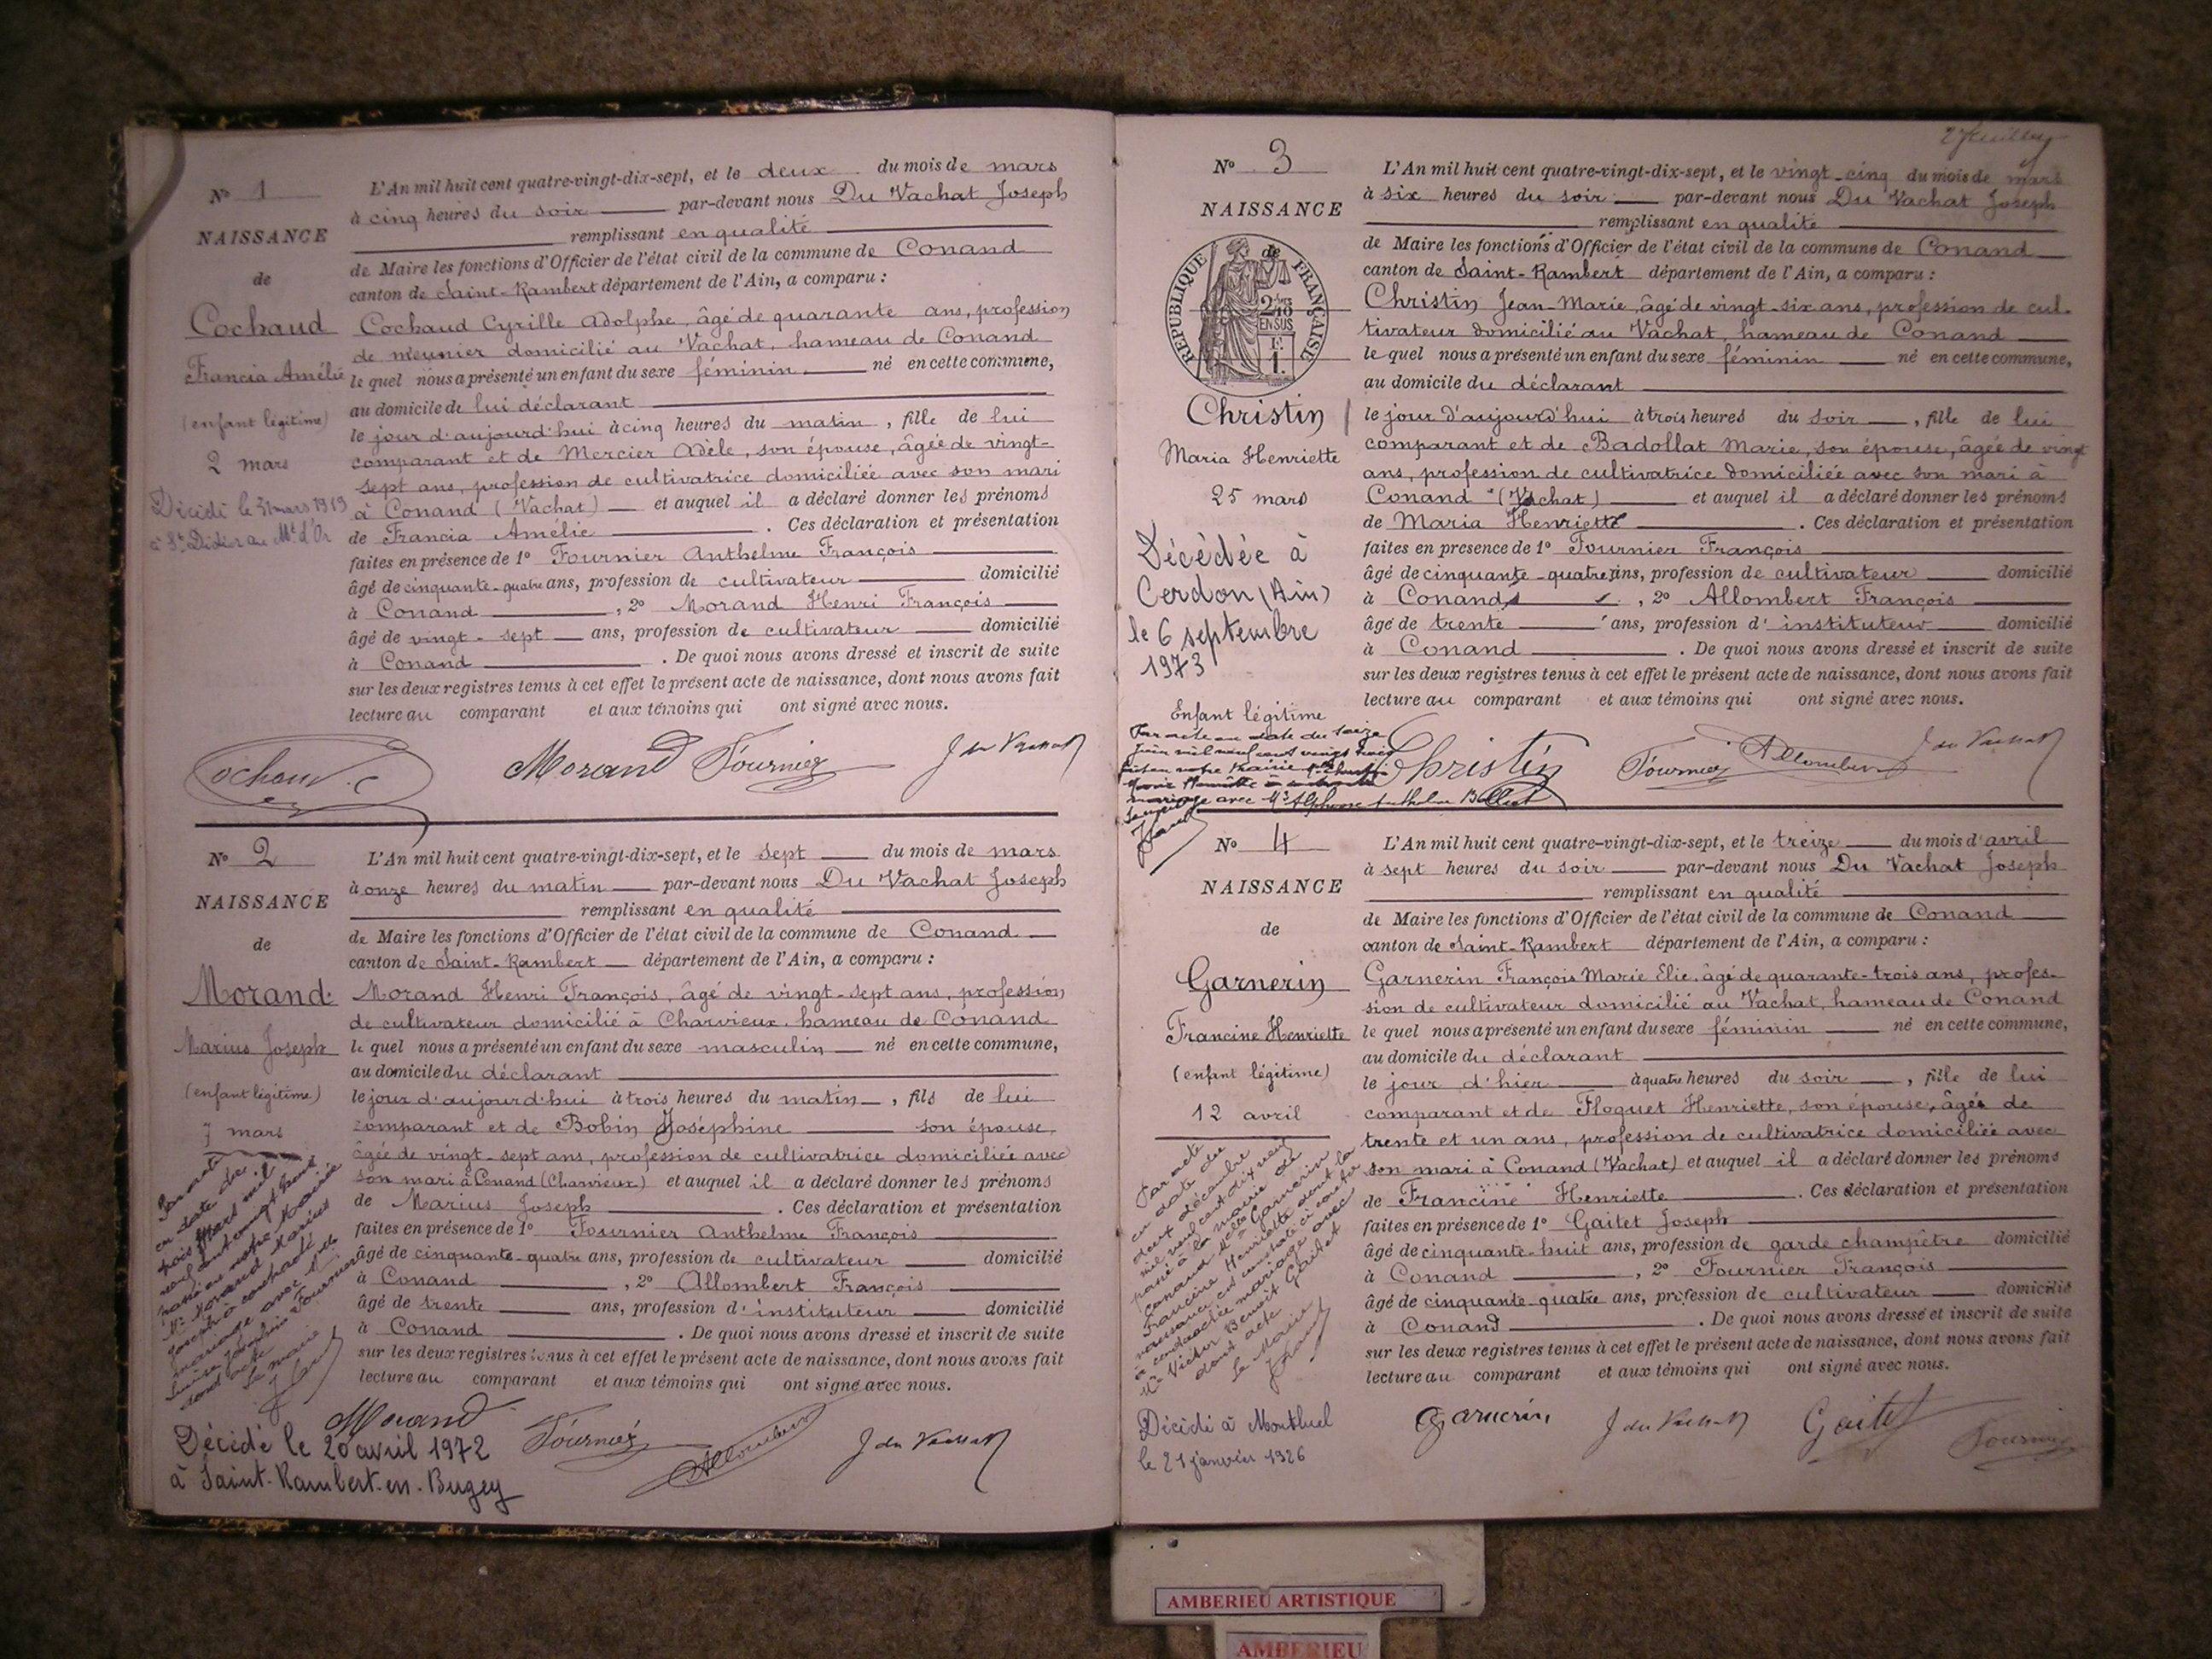 N° 1
NAISSANCE
de
Cochaud
Francia Amélie
(enfant légitime)
2 mars
Décédé le 31 mars 1919
à St Didier au Mt d'Or
L'An mil huit cent quatre-vingt-dix-sept, et le deux du mois de mars
à cinq heures du soir par-devant nous Du Vachat Joseph
remplissant en qualité
de Maire les fonctions d'Officier de l'état civil de la commune de Conand
canton de Saint-Rambert département de l'Ain, a comparu :
Cochaud Cyrille Adolphe, âgé de quarante ans, profession
de meunier domicilié au Vachat, hameau de Conand
le quel nous a présenté un enfant du sexe féminin né en cette commune,
au domicile de lui déclarant
le jour d'aujourd'hui à cinq heures du matin, fille de lui
comparant et de Mercier Adèle, son épouse, âgée de vingt-
sept ans, profession de cultivatrice domiciliée avec son mari
à Conand (Vachat) et auquel il a déclaré donner les prénoms
de Francia Amélie. Ces déclaration et présentation
faites en présence de 1° Fournier Anthelme François
âgé de cinquante-quatre ans, profession de cultivateur domicilié
à Conand, 2° Morand Henri François
âgé de vingt-sept ans, profession de cultivateur domicilié
à Conand. De quoi nous avons dressé et inscrit de suite
sur les deux registres tenus à cet effet le présent acte de naissance, dont nous avons fait
lecture au comparant et aux témoins qui ont signé avec nous.
Cochaud C Morand Fournier J du Vachat
N° 2
NAISSANCE
de
Morand
Marius Joseph
(enfant légitime)
7 mars
Par acte
en date du
trois Mars mil
neuf cent vingt
passé en notre Mairie
Mr Morand Marius
Joseph a contracté
mariage avec Mlle
Joséphine Fournier
dont acte
Le maire
Décédé le 20 avril 1972
à Saint-Rambert-en-Bugey
L'An mil huit cent quatre-vingt-dix-sept, et le sept du mois de mars
à onze heures du matin par-devant nous Du Vachat Joseph
remplissant en qualité
de Maire les fonctions d'Officier de l'état civil de la commune de Conand
canton de Saint-Rambert département de l'Ain, a comparu :
Morand Henri François, âgé de vingt-sept ans, profession
de cultivateur domicilié à Charvieux, hameau de Conand
le quel nous a présenté un enfant du sexe masculin né en cette commune,
au domicile du déclarant
le jour d'aujourd'hui à trois heures du matin, fils de lui
comparant et de Bobin Joséphine son épouse,
âgée de vingt-sept ans, profession de cultivatrice domiciliée avec
son mari à Conand (Charvieux) et auquel il a déclaré donner les prénoms
de Marius Joseph. Ces déclaration et présentation
faites en présence de 1° Fournier Anthelme François
âgé de cinquante-quatre ans, profession de cultivateur domicilié
à Conand, 2° Allombert François
âgé de trente ans, profession d'instituteur domicilié
à Conand. De quoi nous avons dressé et inscrit de suite
sur les deux registres tenus à cet effet le présent acte de naissance, dont nous avons fait
lecture au comparant et aux témoins qui ont signé avec nous.
Morand Fournier Allombert J du Vachat
N° 3
NAISSANCE
de
RÉPUBLIQUE FRANÇAISE
2/10
EN SUS
1.
Christin
Maria Henriette
25 mars
Décédée à
Cerdon (Ain)
le 6 septembre
1973
Enfant légitime
Par acte en date du seize
Juin mil neuf cent vingt
mariage avec Mr Alphonse
L'An mil huit cent quatre-vingt-dix-sept, et le vingt-cinq du mois de mars
à six heures du soir par-devant nous Du Vachat Joseph
remplissant en qualité
de Maire les fonctions d'Officier de l'état civil de la commune de Conand
canton de Saint-Rambert département de l'Ain, a comparu :
Christin Jean-Marie, âgé de vingt-six ans, profession de cul-
tivateur domicilié au Vachat, hameau de Conand
le quel nous a présenté un enfant du sexe féminin né en cette commune,
au domicile du déclarant
le jour d'aujourd'hui à trois heures du soir, fille de lui
comparant et de Badollat Marie, son épouse, âgée de vingt
ans, profession de cultivatrice domiciliée avec son mari à
Conand (Vachat) et auquel il a déclaré donner les prénoms
de Maria Henriette. Ces déclaration et présentation
faites en presence de 1° Fournier François
âgé de cinquante-quatre ans, profession de cultivateur domicilié
à Conand, 2° Allombert François
âgé de trente ans, profession d'instituteur domicilié
à Conand. De quoi nous avons dressé et inscrit de suite
sur les deux registres tenus à cet effet le présent acte de naissance, dont nous avons fait
lecture au comparant et aux témoins qui ont signé avec nous.
Christin Fournier Allombert J du Vachat
N° 4
NAISSANCE
de
Garnerin
Francine Henriette
(enfant légitime)
12 avril
Par acte
en date du
deux décembre
mil neuf cent dix neuf
passé à la mairie de
Conand Mlle Garnerin
Francine Henriette dont la
naissance est constatée ci contre
a contracté mariage avec
Mr Victor Benoit Gaitet
dont acte
Le Maire
Décédé à Montluel
le 21 janvier 1926
L'An mil huit cent quatre-vingt-dix-sept, et le treize du mois d'avril
à sept heures du soir par-devant nous Du Vachat Joseph
remplissant en qualité
de Maire les fonctions d'Officier de l'état civil de la commune de Conand
canton de Saint-Rambert département de l'Ain, a comparu :
Garnerin François Marie Elie, âgé de quarante-trois ans, profes-
sion de cultivateur domicilié au Vachat, hameau de Conand
le quel nous a présenté un enfant du sexe féminin né en cette commune,
au domicile du déclarant
le jour d'hier à quatre heures du soir, fille de lui
comparant et de Floquet Henriette, son épouse, âgée de
trente et un ans, profession de cultivatrice domiciliée avec
son mari à Conand (Vachat) et auquel il a déclaré donner les prénoms
de Francine Henriette. Ces déclaration et présentation
faites en présence de 1° Gaitet Joseph
âgé de cinquante-huit ans, profession de garde champêtre domicilié
à Conand, 2° Fournier François
âgé de cinquante-quatre ans, profession de cultivateur domicilié
à Conand. De quoi nous avons dressé et inscrit de suite
sur les deux registres tenus à cet effet le présent acte de naissance, dont nous avons fait
lecture au comparant et aux témoins qui ont signé avec nous.
Garnerin J du Vachat Gaitet Fournier
AMBERIEU ARTISTIQUE
AMBERIEU